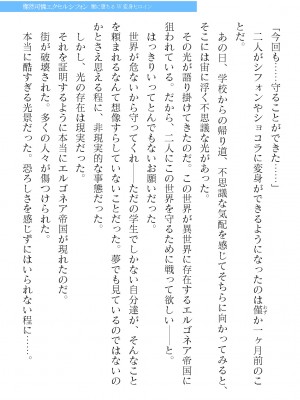 「今回も……守ることができた……」
二人がシフォンやショコラに変身ができるようになったのは僅か一ヶ月前のこ
とだ。
あの日、学校からの帰り道、不思議な気配を感じてそちらに向かってみると、
そこには宙に浮く不思議な光があった。
その光が語り掛けてきたのだ。この世界が異世界に存在するエルゴネア帝国に
狙われている。だから、二人にこの世界を守るために戦って欲しい――と。
はっきりいってとんでもないお願いだった。
世界が危ないから守ってくれ――ただの学生でしかない自分達が、そんなこと
を頼まれるなんて想像すらしていないことだった。夢でも見ているのではないの
かとさえ思える程に、非現実的な事態だった。
しかし、光の存在は現実だった。
それを証明するように本当にエルゴネア帝国が現れたのだ。
街が破壊された。多くの人々が傷つけられた。
本当に酷すぎる光景だった。恐ろしさを感じずにはいられない程に……。